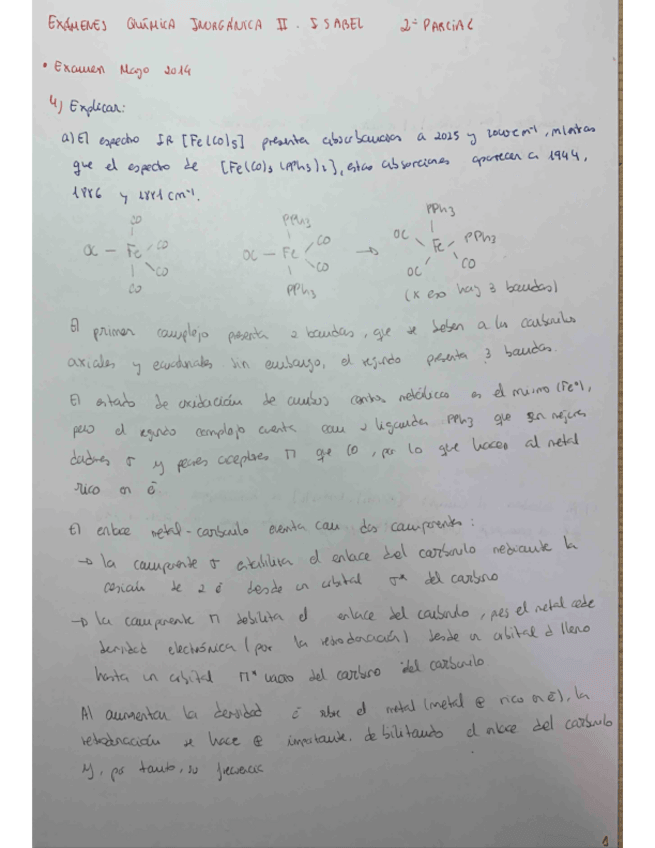 EXÁMENES QUÍMICA INORGÁNICA II. ISABEL 2º PARCIAL
• Examen Mayo 2014
4) Explicar:
a) El espectro IR [Fe(CO)5] presenta absorbancias a 2025 y 2000 cm-1, mientras
que el espectro de [Fe(CO)3(PPh3)2], estas absorciones aparecen a 1944,
1886 y 1881 cm-1.
CO OC - Fe CO CO CO
PPh3 OC - Fe CO CO PPh3
→ PPh3 OC Fe PPh3 OC CO
(x eso hay 3 bandas)
El primer complejo presenta 2 bandas, que se deben a los carbonilos
axiales y ecuatoriales. Sin embargo, el segundo presenta 3 bandas.
El estado de oxidación de ambos centros metálicos es el mismo (Fe⁰),
pero el segundo complejo cuenta con 2 ligandos PPh3 que son mejores
dadores σ y peores aceptores π que CO, por lo que hacen al metal
rico en ē
El enlace metal-carbonilo cuenta con dos componentes:
→ La componente σ estabiliza el enlace del carbonilo mediante la
cesión de 2 ē desde un orbital σ* del carbono
→ La componente π debilita el enlace del carbonilo, pues el metal cede
densidad electrónica (por la retrodonación) desde un orbital d lleno
hasta un orbital π* vacío del carbono del carbonilo
Al aumentar la densidad ē sobre el metal (metal ⊕ rico en ē), la
retrodonación se hace ⊕ importante, debilitando el enlace del carbonilo
y, por tanto, su frecuencia
1